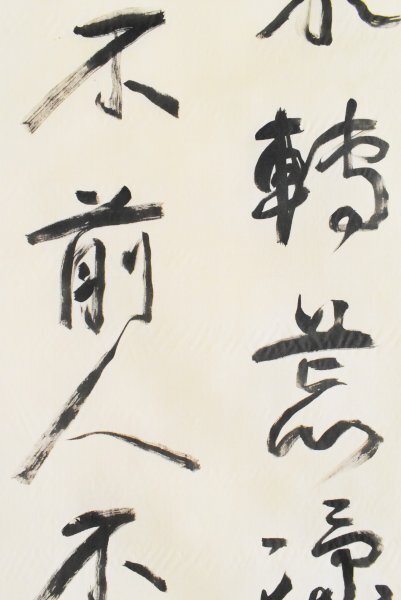 轉荒
不前人不